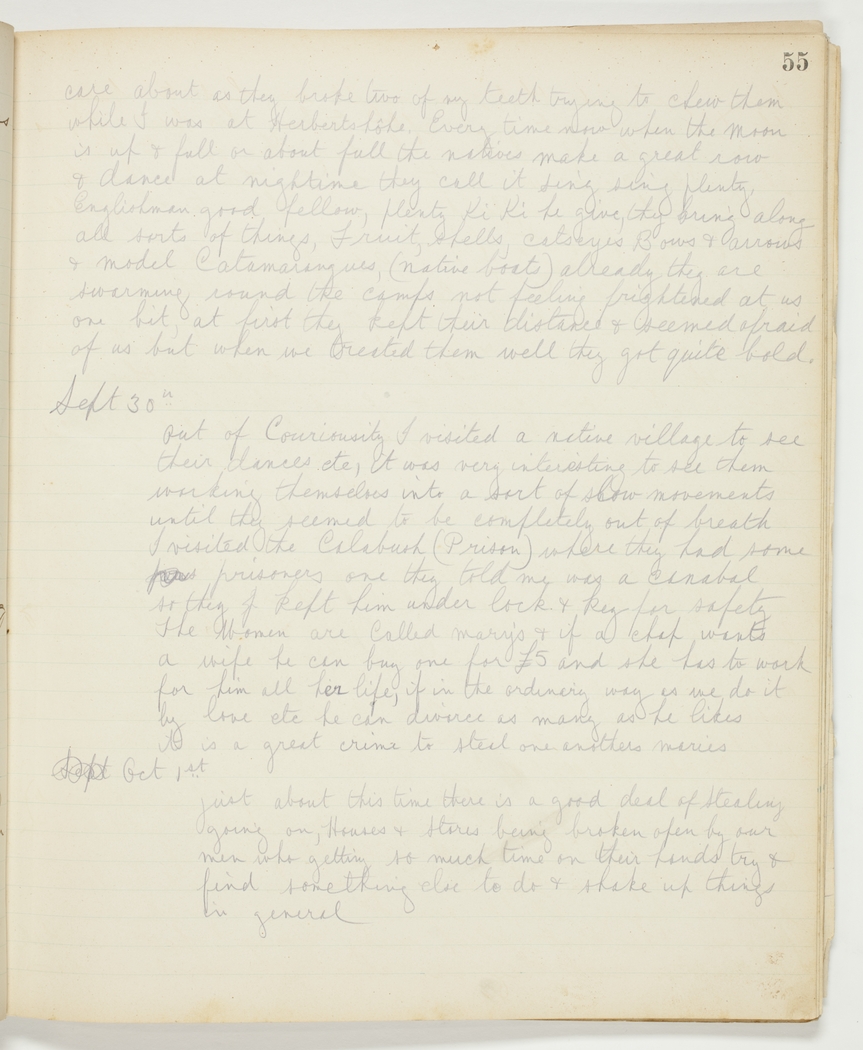 55
care about as they broke two of my teeth trying to chew them
while I was at Herbertshöhe. Every time now when the moon
is up & full or about full the natives make a great row
& dance at nightime they call it sing sing plenty,
Englishman good fellow, plenty Ki Ki he give, they bring along
all sorts of things, Fruit, shells, catseyes Bows & arrows
& model Catamarangues, (native boats) already they are
swarming round the camps not feeling frightened at us
one bit, at first they kept their distance & seemed afraid
of us but when we treated them well they got quite bold.
Sept 30th
out of Couriousity I visited a native village to see
their dances etc, It was very interesting to see them
working themselves into a sort of slow movements
until they seemed to be completely out of breath
I visited the Calabush (Prison) where they had some
prisoners one they told my was a canabal
so they kept him under lock & key for safety
The Women are Called mary's & if a chap wants
a wife he can buy one for £5 and she has to work
for him all her life, if in the ordinery way as we do it
by love etc he can divorce as many as he likes
it is a great crime to steal one anothers maries
Sept Oct 1st
just about this time there is a good deal of stealing
going on, Houses & Stores being broken open by our
men who getting so much time on their hands try &
find something else to do & shake up things
in general